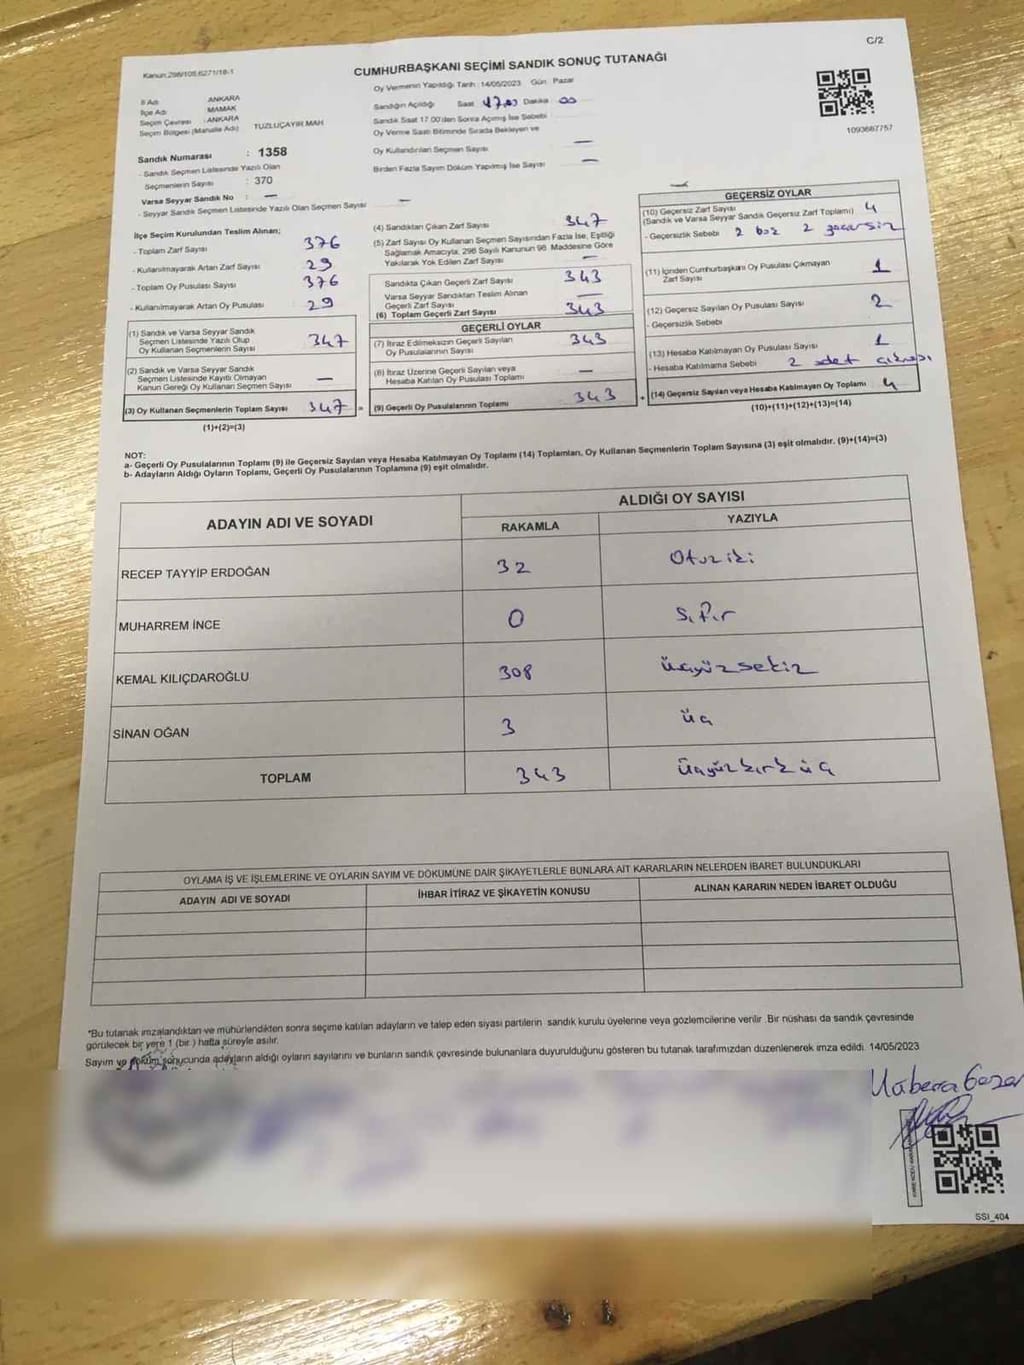 C/2
Kanun 298/105,6271/18-1
CUMHURBAŞKANI SEÇİMİ SANDIK SONUÇ TUTANAĞI
Oy Vermenin Yapıldığı Tarih : 14/05/2023 Gün : Pazar
İl Adı : ANKARA
İlçe Adı : MAMAK
Seçim Çevresi : ANKARA
Seçim Bölgesi (Mahalle Adı) TUZLUÇAYIR MAH
Sandığın Açıldığı Saat 17.00 Dakika 00
Sandık Saat 17.00'den Sonra Açılmış İse Sebebi
Oy Verme Saati Bitiminde Sırada Bekleyen ve
Oy Kullandırılan Seçmen Sayısı —
Birden Fazla Sayım Döküm Yapılmış İse Sayısı —
1093687757
Sandık Numarası : 1358
- Sandık Seçmen Listesinde Yazılı Olan
Seçmenlerin Sayısı : 370
Varsa Seyyar Sandık No : —
- Seyyar Sandık Seçmen Listesinde Yazılı Olan Seçmen Sayısı —
İlçe Seçim Kurulundan Teslim Alınan;
- Toplam Zarf Sayısı 376
- Kullanılmayarak Artan Zarf Sayısı 29
- Toplam Oy Pusulası Sayısı 376
- Kullanılmayarak Artan Oy Pusulası 29
(1) Sandık ve Varsa Seyyar Sandık
Seçmen Listesinde Yazılı Olup
Oy Kullanan Seçmenlerin Sayısı 347
(2) Sandık ve Varsa Seyyar Sandık
Seçmen Listesinde Kayıtlı Olmayan
Kanun Gereği Oy Kullanan Seçmen Sayısı —
(3) Oy Kullanan Seçmenlerin Toplam Sayısı 347 =
(1)+(2)=(3)
(4) Sandıktan Çıkan Zarf Sayısı 347
(5) Zarf Sayısı Oy Kullanan Seçmen Sayısından Fazla İse, Eşitliği
Sağlamak Amacıyla, 298 Sayılı Kanunun 98. Maddesine Göre
Yakılarak Yok Edilen Zarf Sayısı —
Sandıkta Çıkan Geçerli Zarf Sayısı 343
Varsa Seyyar Sandıktan Teslim Alınan
Geçerli Zarf Sayısı —
(6) Toplam Geçerli Zarf Sayısı 343
GEÇERLİ OYLAR
(7) İtiraz Edilmeksizin Geçerli Sayılan
Oy Pusulalarının Sayısı 343
(8) İtiraz Üzerine Geçerli Sayılan veya
Hesaba Katılan Oy Pusulası Toplamı —
(9) Geçerli Oy Pusulalarının Toplamı 343 +
GEÇERSİZ OYLAR
(10) Geçersiz Zarf Sayısı
(Sandık ve Varsa Seyyar Sandık Geçersiz Zarf Toplamı) 4
- Geçersizlik Sebebi 2 boş 2 geçersiz
(11) İçinden Cumhurbaşkanı Oy Pusulası Çıkmayan
Zarf Sayısı 1
(12) Geçersiz Sayılan Oy Pusulası Sayısı 2
- Geçersizlik Sebebi
(13) Hesaba Katılmayan Oy Pusulası Sayısı 1
- Hesaba Katılmama Sebebi 2 adet
(14) Geçersiz Sayılan veya Hesaba Katılmayan Oy Toplamı 4
(10)+(11)+(12)+(13)=(14)
NOT:
a- Geçerli Oy Pusulalarının Toplamı (9) ile Geçersiz Sayılan veya Hesaba Katılmayan Oy Toplamı (14) Toplamları, Oy Kullanan Seçmenlerin Toplam Sayısına (3) eşit olmalıdır. (9)+(14)=(3)
b- Adayların Aldığı Oyların Toplamı, Geçerli Oy Pusulalarının Toplamına (9) eşit olmalıdır.
ADAYIN ADI VE SOYADI
ALDIĞI OY SAYISI
RAKAMLA YAZIYLA
RECEP TAYYİP ERDOĞAN 32 Otuziki
MUHARREM İNCE 0 Sıfır
KEMAL KILIÇDAROĞLU 308 üçyüzsekiz
SİNAN OĞAN 3 üç
TOPLAM 343 Üçyüzkırküç
OYLAMA İŞ VE İŞLEMLERİNE VE OYLARIN SAYIM VE DÖKÜMÜNE DAİR ŞİKAYETLERLE BUNLARA AİT KARARLARIN NELERDEN İBARET BULUNDUKLARI
ADAYIN ADI VE SOYADI İHBAR İTİRAZ VE ŞİKAYETİN KONUSU ALINAN KARARIN NEDEN İBARET OLDUĞU
*Bu tutanak imzalandıktan ve mühürlendikten sonra seçime katılan adayların ve talep eden siyasi partilerin sandık kurulu üyelerine veya gözlemcilerine verilir .Bir nüshası da sandık çevresinde
görülecek bir yere 1 (bir ) hafta süreyle asılır.
Sayım ve döküm sonucunda adayların aldığı oyların sayılarını ve bunların sandık çevresinde bulunanlara duyurulduğunu gösteren bu tutanak tarafımızdan düzenlenerek imza edildi. 14/05/2023
SSI_404